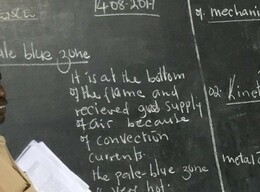 14-08-2017
pale blue zone
It is at the bottom
of the flame and
recieved good supply
of air because
of convection
currents.
the pale-blue zone
is very hot.
of mechani
Kinet
metal